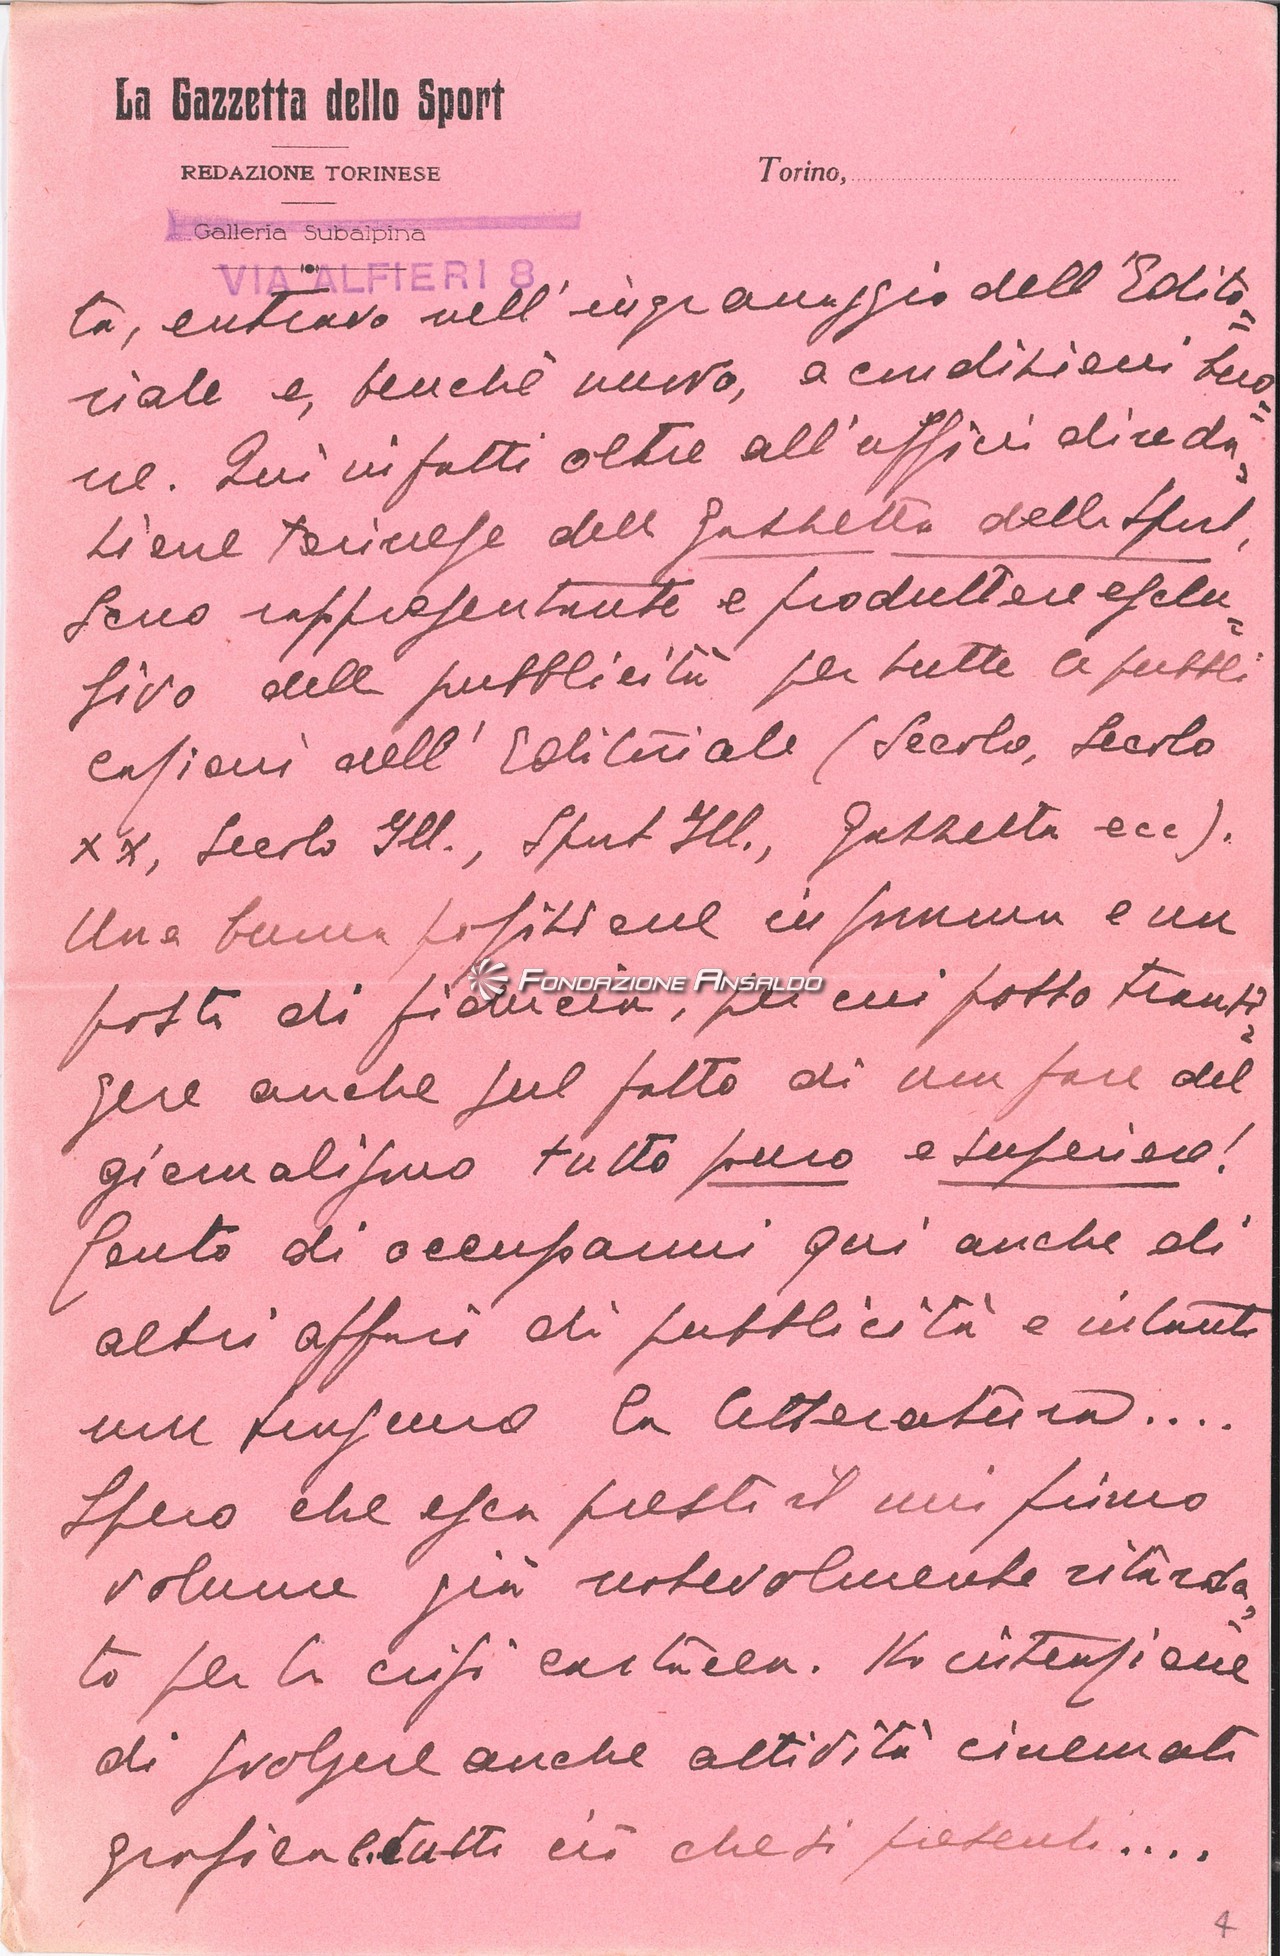 La Gazzetta dello Sport
REDAZIONE TORINESE
Torino,
Galleria Subalpina
VIA ALFIERI 8
to, entravo nell'ingranaggio dell'Edito=
riale e, benchè nuovo, a condizioni buo=
ne. Qui infatti oltre all'uffici di reda=
zione torinese della Gazzetta dello Sport,
sono rappresentante e produttore esclu=
sivo della pubblicità per tutte le pubbli
cazioni dell'Editoriale (Secolo, Secolo
XX, Secolo Ill., Sport Ill., Gazzetta ecc).
Una buona posizione insomma e un
posto di fiducia, per cui posso transi=
gere anche sul fatto di non fare del
giornalismo tutto puro e superiore!
Conto di occuparmi qui anche di
altri affari di pubblicità e intanto
non trascuro la letteratura....
Spero che esca presto il mio primo
volume già notevolmente ritarda=
to per la crisi cartacea. Ho intenzione
di svolgere anche attività cinemato
grafica e tutto ciò che si presenti....
FONDAZIONE ANSALDO
4